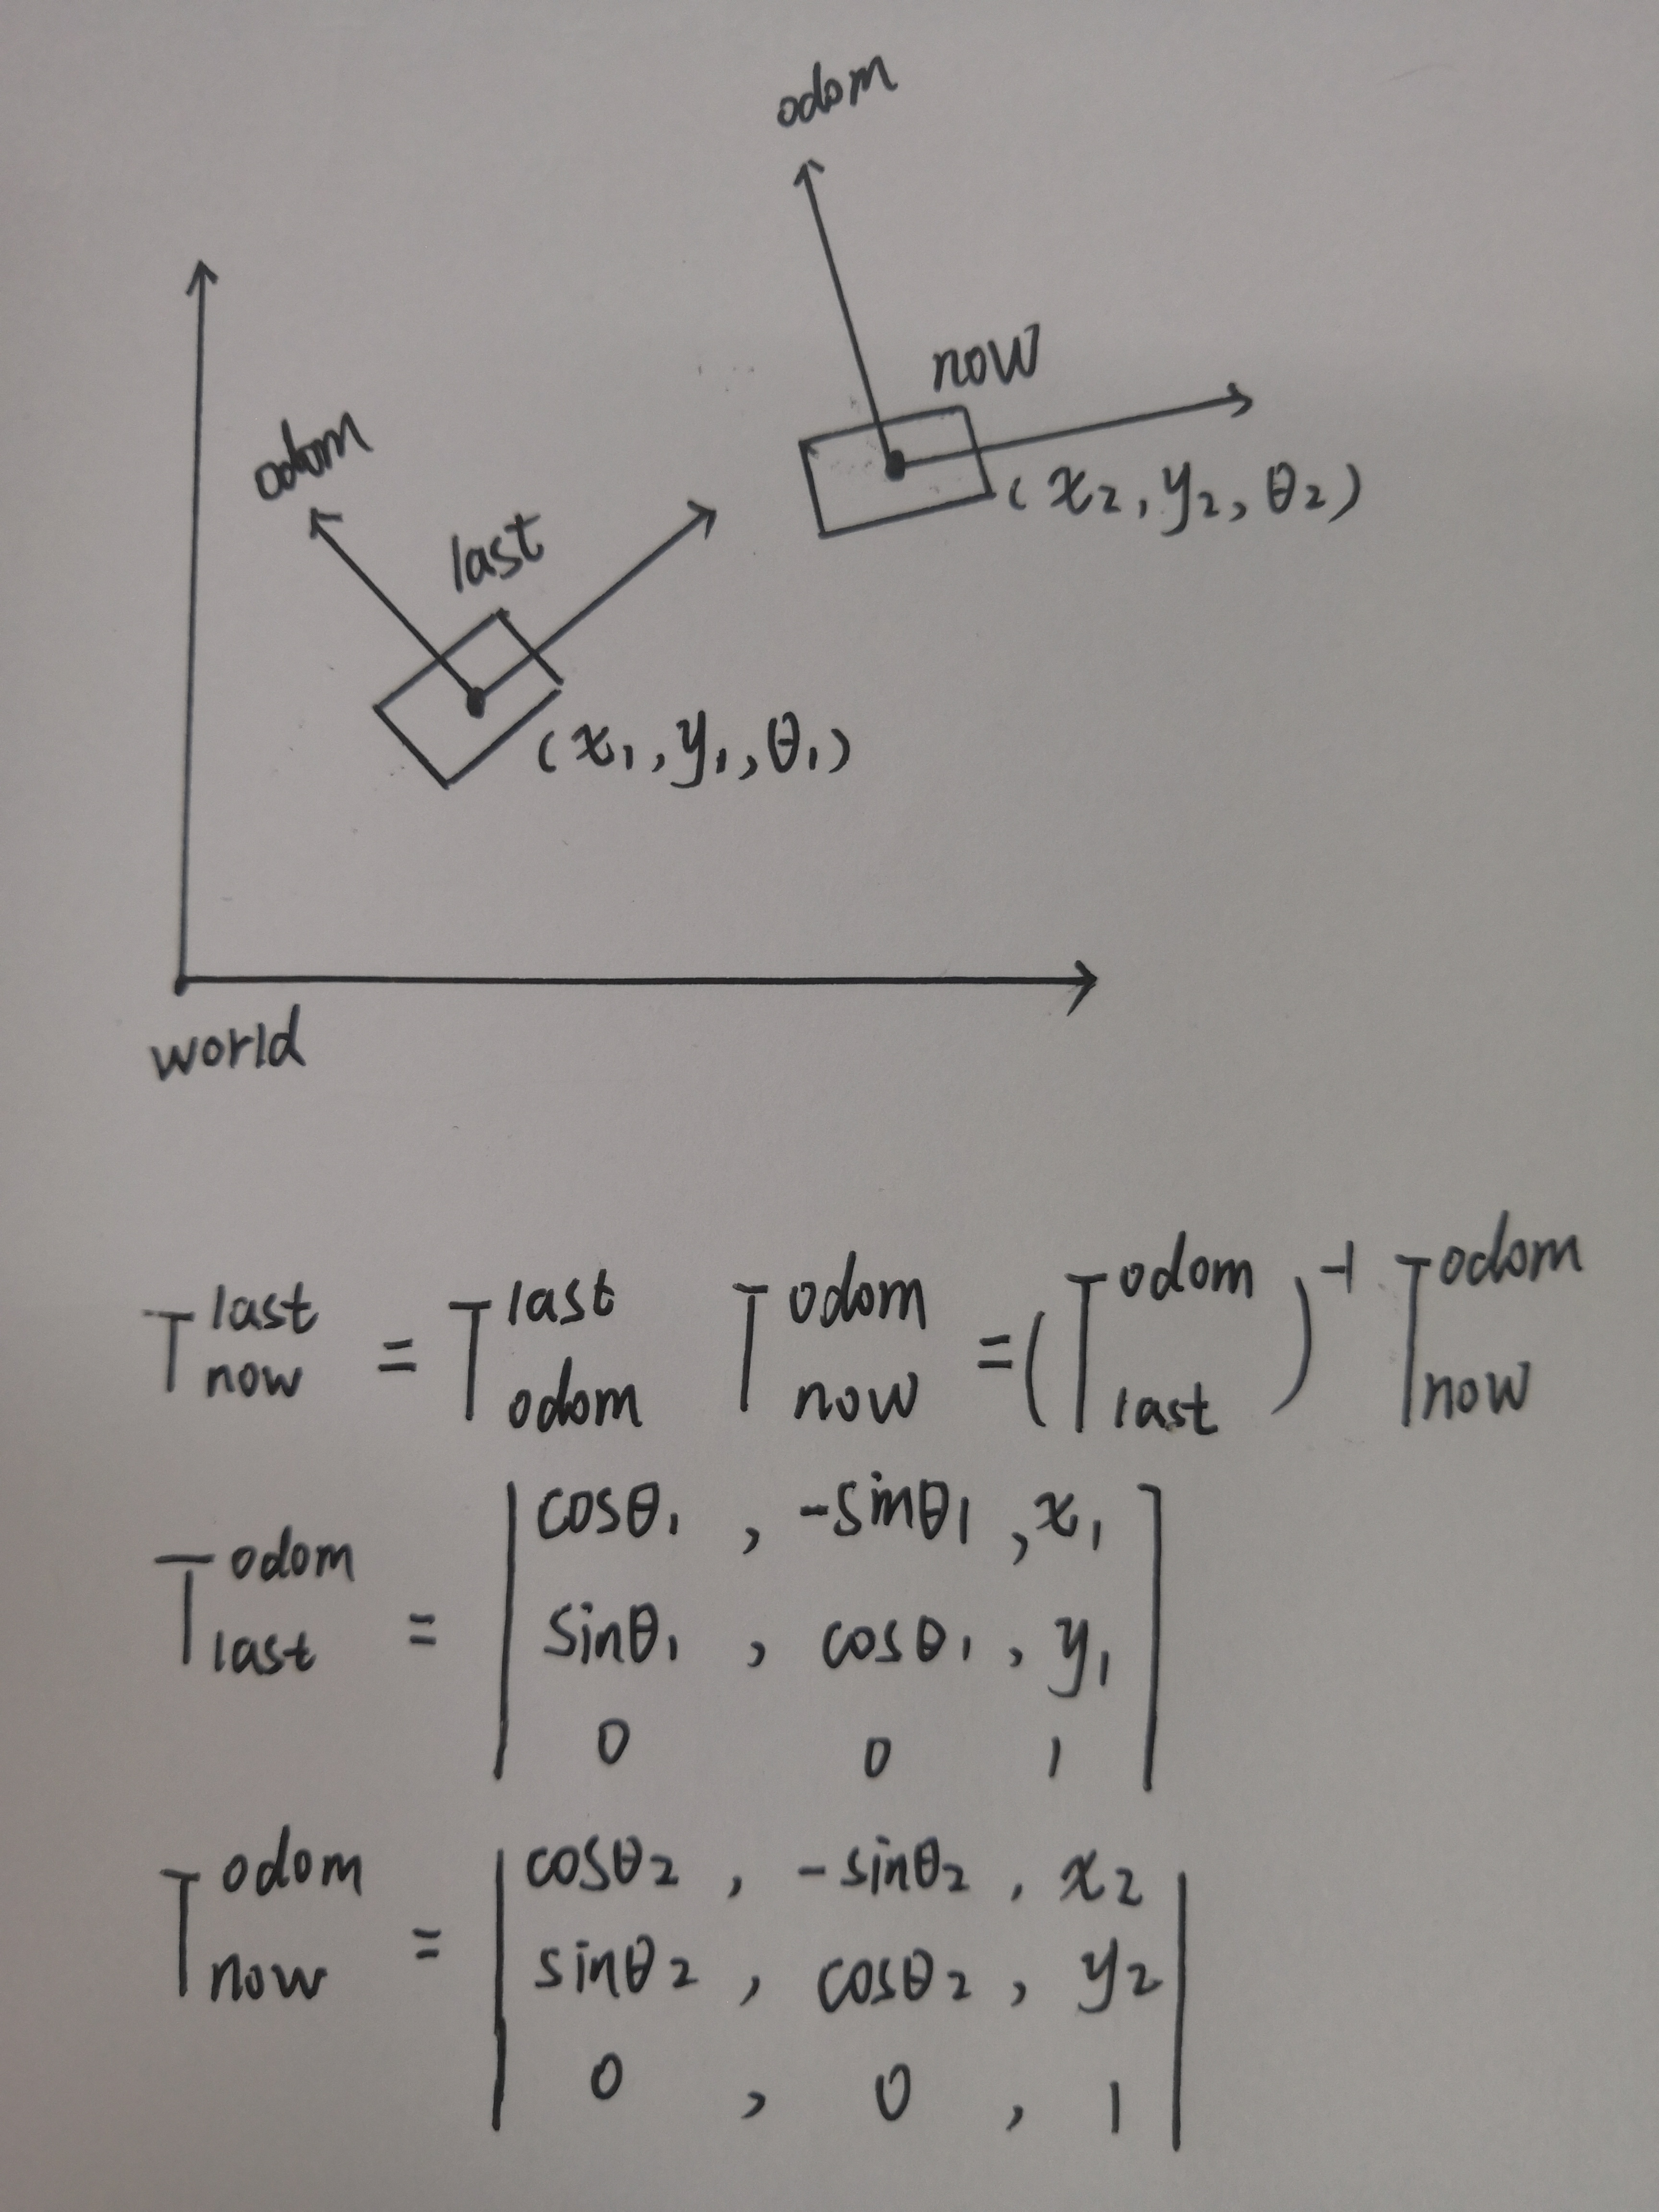 odom
now
(x₂, y₂, θ₂)
odom
last
(x₁, y₁, θ₁)
world
T^last_now = T^last_odom T^odom_now = (T^odom_last)^-1 T^odom_now
T^odom_last =
cosθ₁ , -sinθ₁ , x₁
sinθ₁ , cosθ₁ , y₁
0 0 1
T^odom_now =
cosθ₂ , -sinθ₂ , x₂
sinθ₂ , cosθ₂ , y₂
0 , 0 , 1